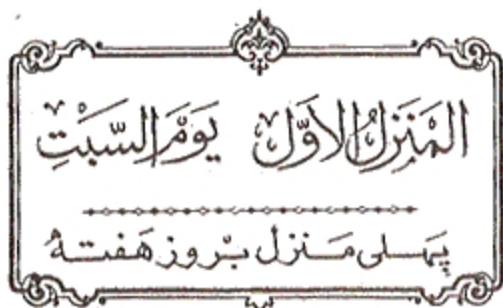 المَنزِلُ الاَوَّل يَومَ السَّبْتِ
پہلی منزل بروز ہفتہ